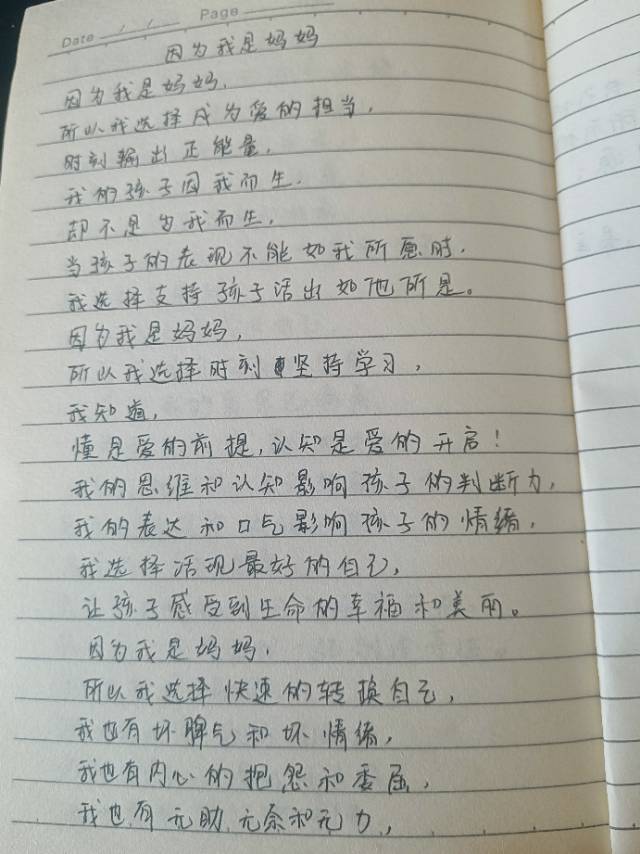 Date / / Page
因为我是妈妈
因为我是妈妈,
所以我选择成为爱的担当,
时刻输出正能量,
我的孩子因我而生,
却不是为我而生,
当孩子的表现不能如我所愿时,
我选择支持孩子活出如他所是。
因为我是妈妈,
所以我选择时刻坚持学习,
我知道,
懂是爱的前提,认知是爱的开启!
我的思维和认知影响孩子的判断力,
我的表达和口气影响孩子的情绪,
我选择活现最好的自己,
让孩子感受到生命的幸福和美丽。
因为我是妈妈,
所以我选择快速的转换自己,
我也有坏脾气和坏情绪,
我也有内心的抱怨和委屈,
我也有无助、无奈和无力,